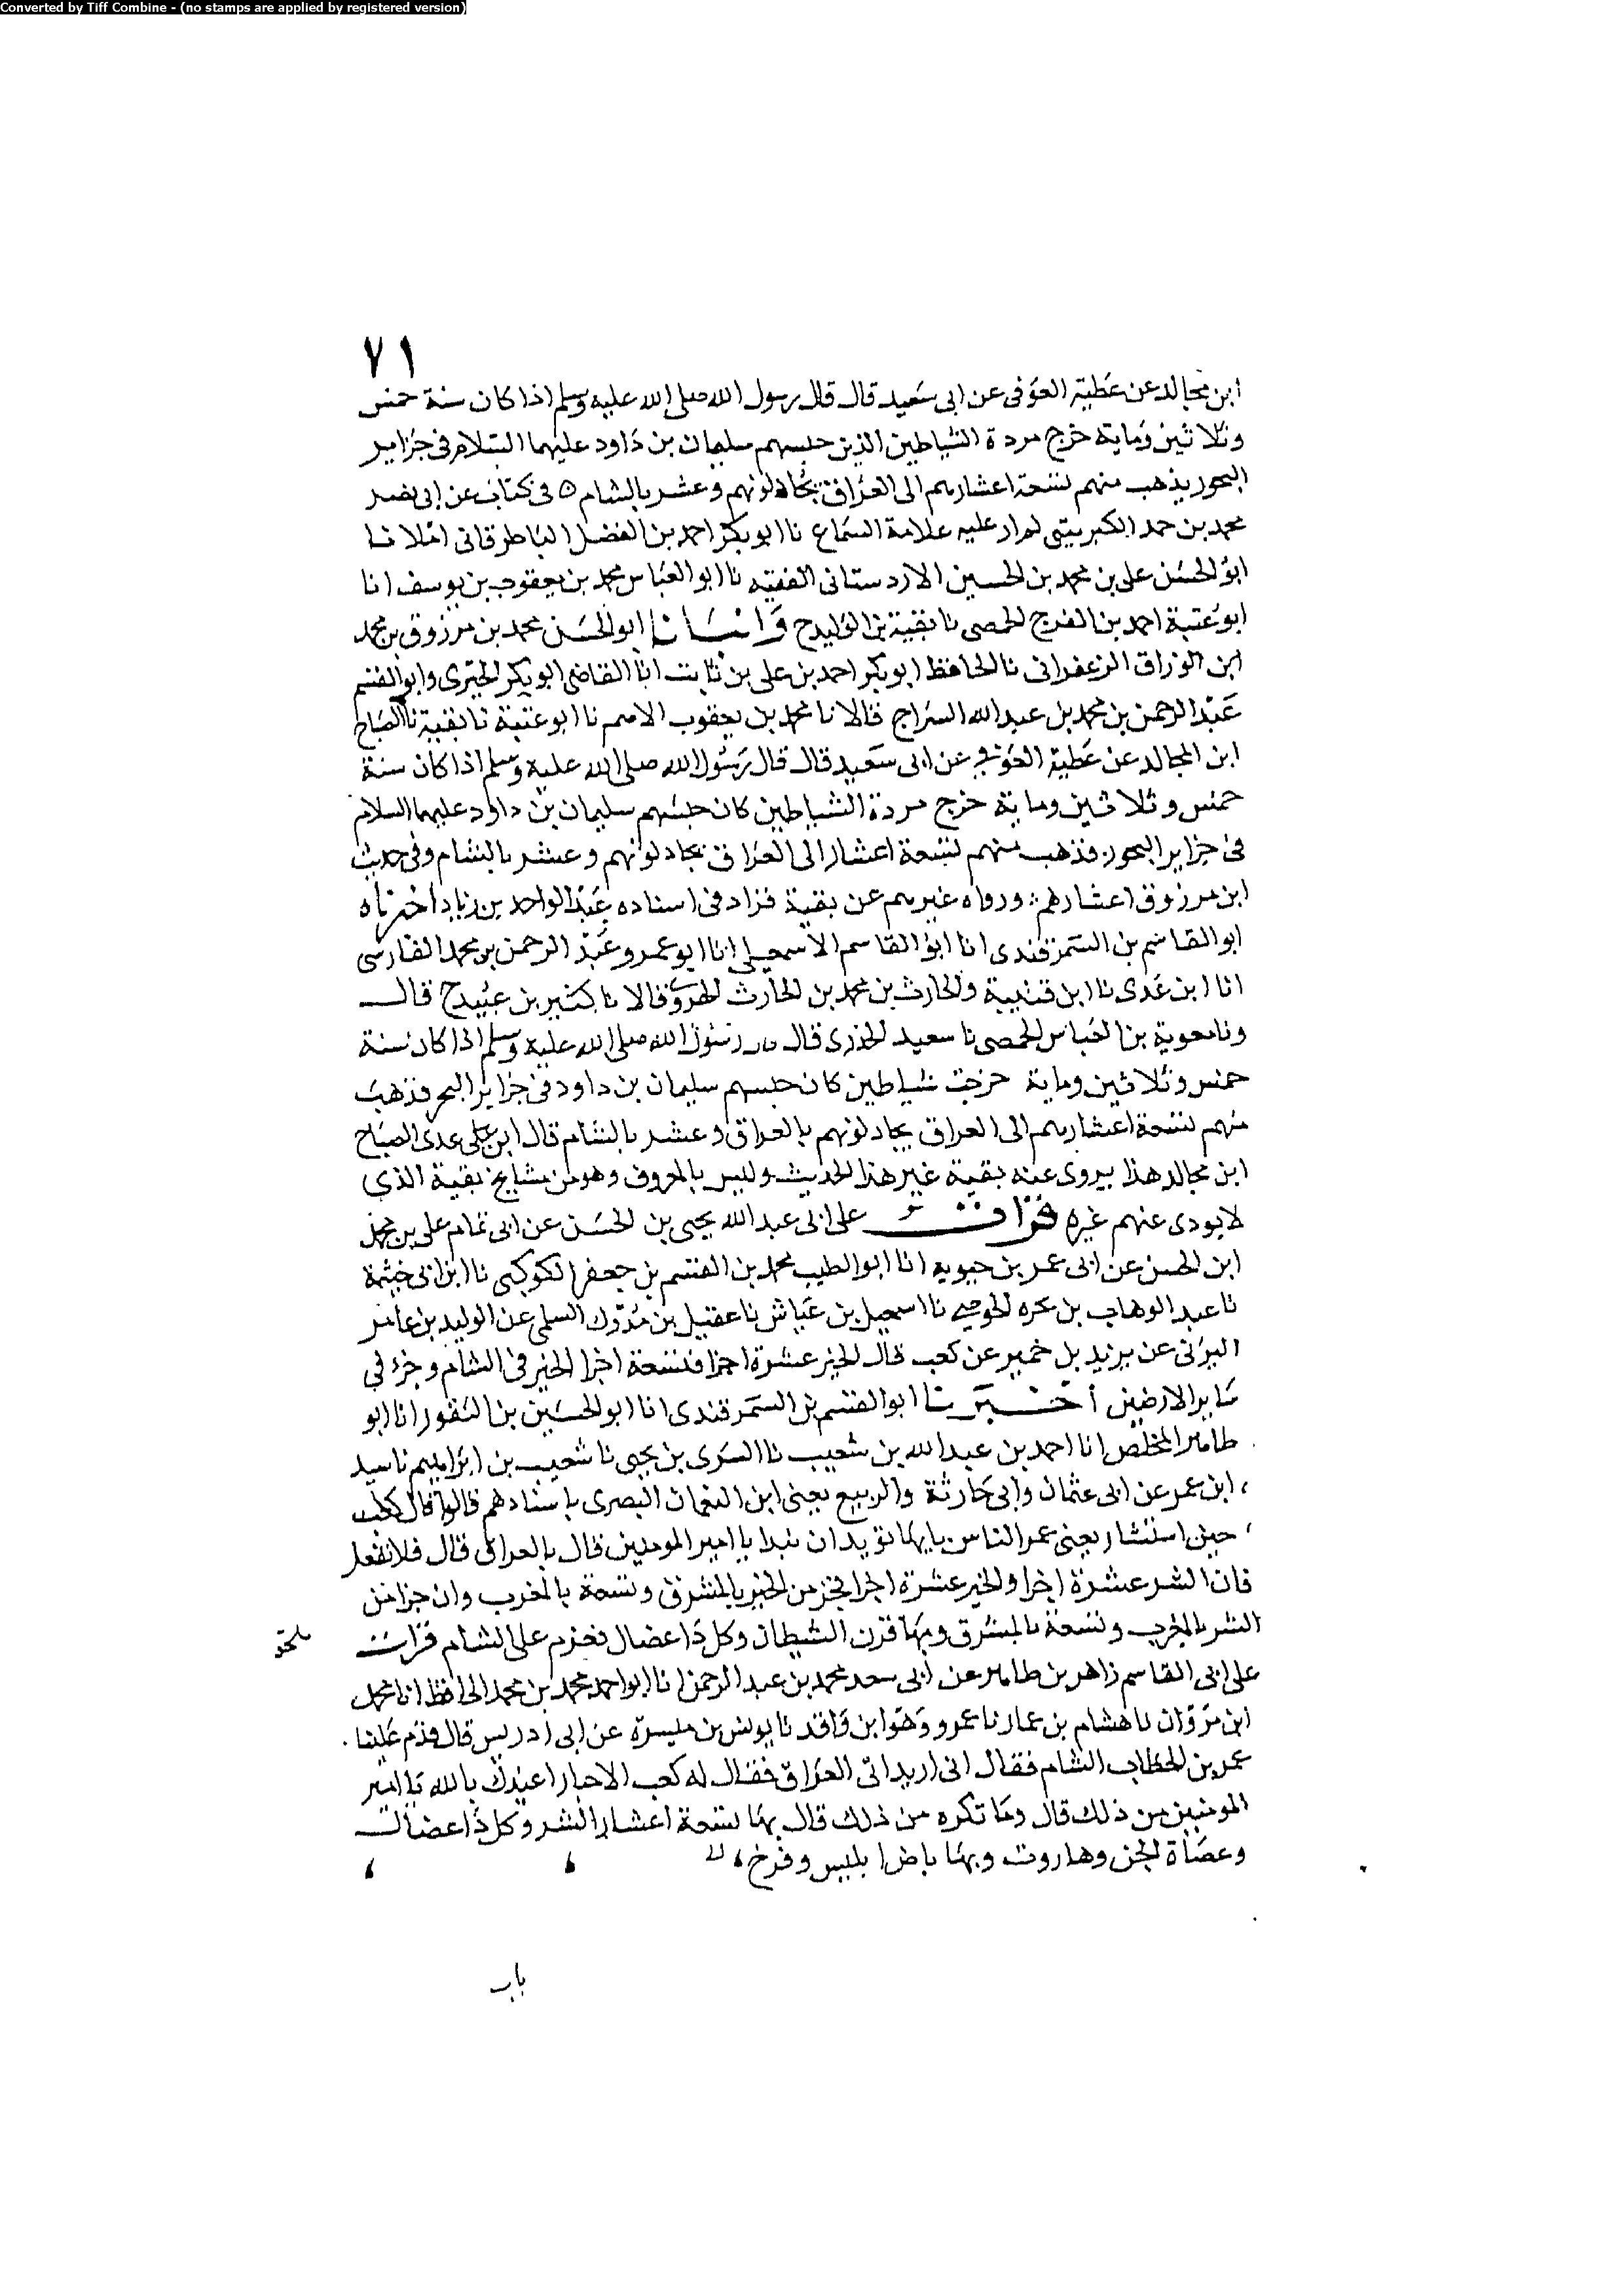 Converted by Tiff Combine - (no stamps are applied by registered version)
٧١
ابن مجالد عن عطية العوفى عن ابى سعيد قال قال رسول الله صلى الله عليه وسلم اذا كان سنة خمس
وثلاثين وماية خرج مردة الشياطين الذين حبسهم سليمان بن داود عليهما السلام فى جزاير
البحور يذهب منهم تسعة اعشارهم الى العراق يجادلونهم وعشر بالشام ٥ فى كتاب عن ابى نصر
محمد بن حمد الكبريتى لم ار عليه علامة السماع نا ابو بكر احمد بن الفضل الباطرقانى املا نا
ابو الحسن على بن محمد بن الحسين الاردستانى الفقيه نا ابو العباس محمد بن يعقوب بن يوسف انا
ابو عتبة احمد بن الفرج الحمصى نا بقية بن الوليد ح وانبانا ابو الحسن محمد بن مرزوق بن محمد
ابن الوراق الزعفرانى نا الحافظ ابو بكر احمد بن على بن ثابت انا القاضى ابو بكر الحيرى وابو القسم
عبد الرحمن بن محمد بن عبد الله السراج قالا نا محمد بن يعقوب الاصم نا ابو عتبة نا بقية نا الصباح
ابن المجالد عن عطية العوفى عن ابى سعيد قال قال رسول الله صلى الله عليه وسلم اذا كان سنة
خمس وثلاثين وماية خرج مردة الشياطين كان حبسهم سليمان بن داود عليهما السلام
فى جزاير البحور فذهب منهم تسعة اعشار الى العراق يجادلونهم وعشر بالشام وفى حديث
ابن مرزوق اعشارهم ورواه غيرهم عن بقية فزاد فى اسناده عبد الواحد بن زياد اخبرناه
ابو القاسم بن السمرقندى انا ابو القاسم الاسمعيلى انا ابو عمرو عبد الرحمن بن محمد الفارسى
انا ابن عدى نا ابن قتيبة والحارث بن محمد بن الحارث قالا نا كثير بن عبيد ح قال
ونا معوية بن العباس الحمصى نا سعيد قال قال رسول الله صلى الله عليه وسلم اذا كان سنة
خمس وثلاثين وماية خرجت شياطين كان حبسهم سليمان بن داود فى جزاير البحر فذهب
منهم تسعة اعشارهم الى العراق يجادلونهم بالعراق وعشر بالشام قال ابن عدى الصباح
ابن مجالد هذا يروى عنه بقية غير هذا الحديث وليس بالمعروف وهو من مشايخ بقية الذى
لا يروى عنهم غيره قرات على ابى عبد الله يحيى بن الحسن عن ابى تمام على بن محمد
ابن الحسن عن ابى عمر بن حيويه انا ابو الطيب محمد بن القسم بن جعفر الكوكبى نا ابن ابى خيثمة
نا عبد الوهاب بن نا اسمعيل بن عياش نا عقيل بن مدرك السلمى عن الوليد بن عامر
اليزنى عن يزيد بن خمير عن كعب قال الخير عشرة اجزا فتسعة اجزا الخير فى الشام وجزء فى
ساير الارضين أخبرنا ابو القسم بن السمرقندى انا ابو الحسين بن النقور انا ابو
طاهر المخلص انا احمد بن عبد الله بن شعيب نا السرى بن يحيى نا شعيب بن ابراهيم نا سيف
ابن عمر عن ابى عثمان وابى حارثة والربيع يعنى ابن النعمان البصرى باسنادهم قالوا قال كعب
حين استشار يعنى عمر الناس بايها تريد ان تبدا يا امير المومنين قال بالعراق قال فلا تفعل
فان الشر عشرة اجزا والخير عشرة اجزا فجزء من الخير بالمشرق وتسعة بالمغرب وان جزا من
الشر بالمغرب وتسعة بالمشرق وبها قرن الشيطان وكل دا عضال فعزم على الشام قرات
على ابى القاسم زاهر بن طاهر عن ابى سعد محمد بن عبد الرحمن انا ابو احمد محمد بن محمد الحافظ انا محمد
ابن مروان نا هشام بن عمار نا عمرو وهو ابن واقد نا يونس بن ميسرة عن ابى ادريس قال قدم علينا
عمر بن الخطاب الشام فقال انى اريد اتى العراق فقال له كعب الاحبار اعيذك بالله يا امير
المومنين من ذلك قال وما تكره من ذلك قال بها تسعة اعشار الشر وكل دا عضال
وعصاة الجن وهاروت وبها باض ابليس وفرخ
باب